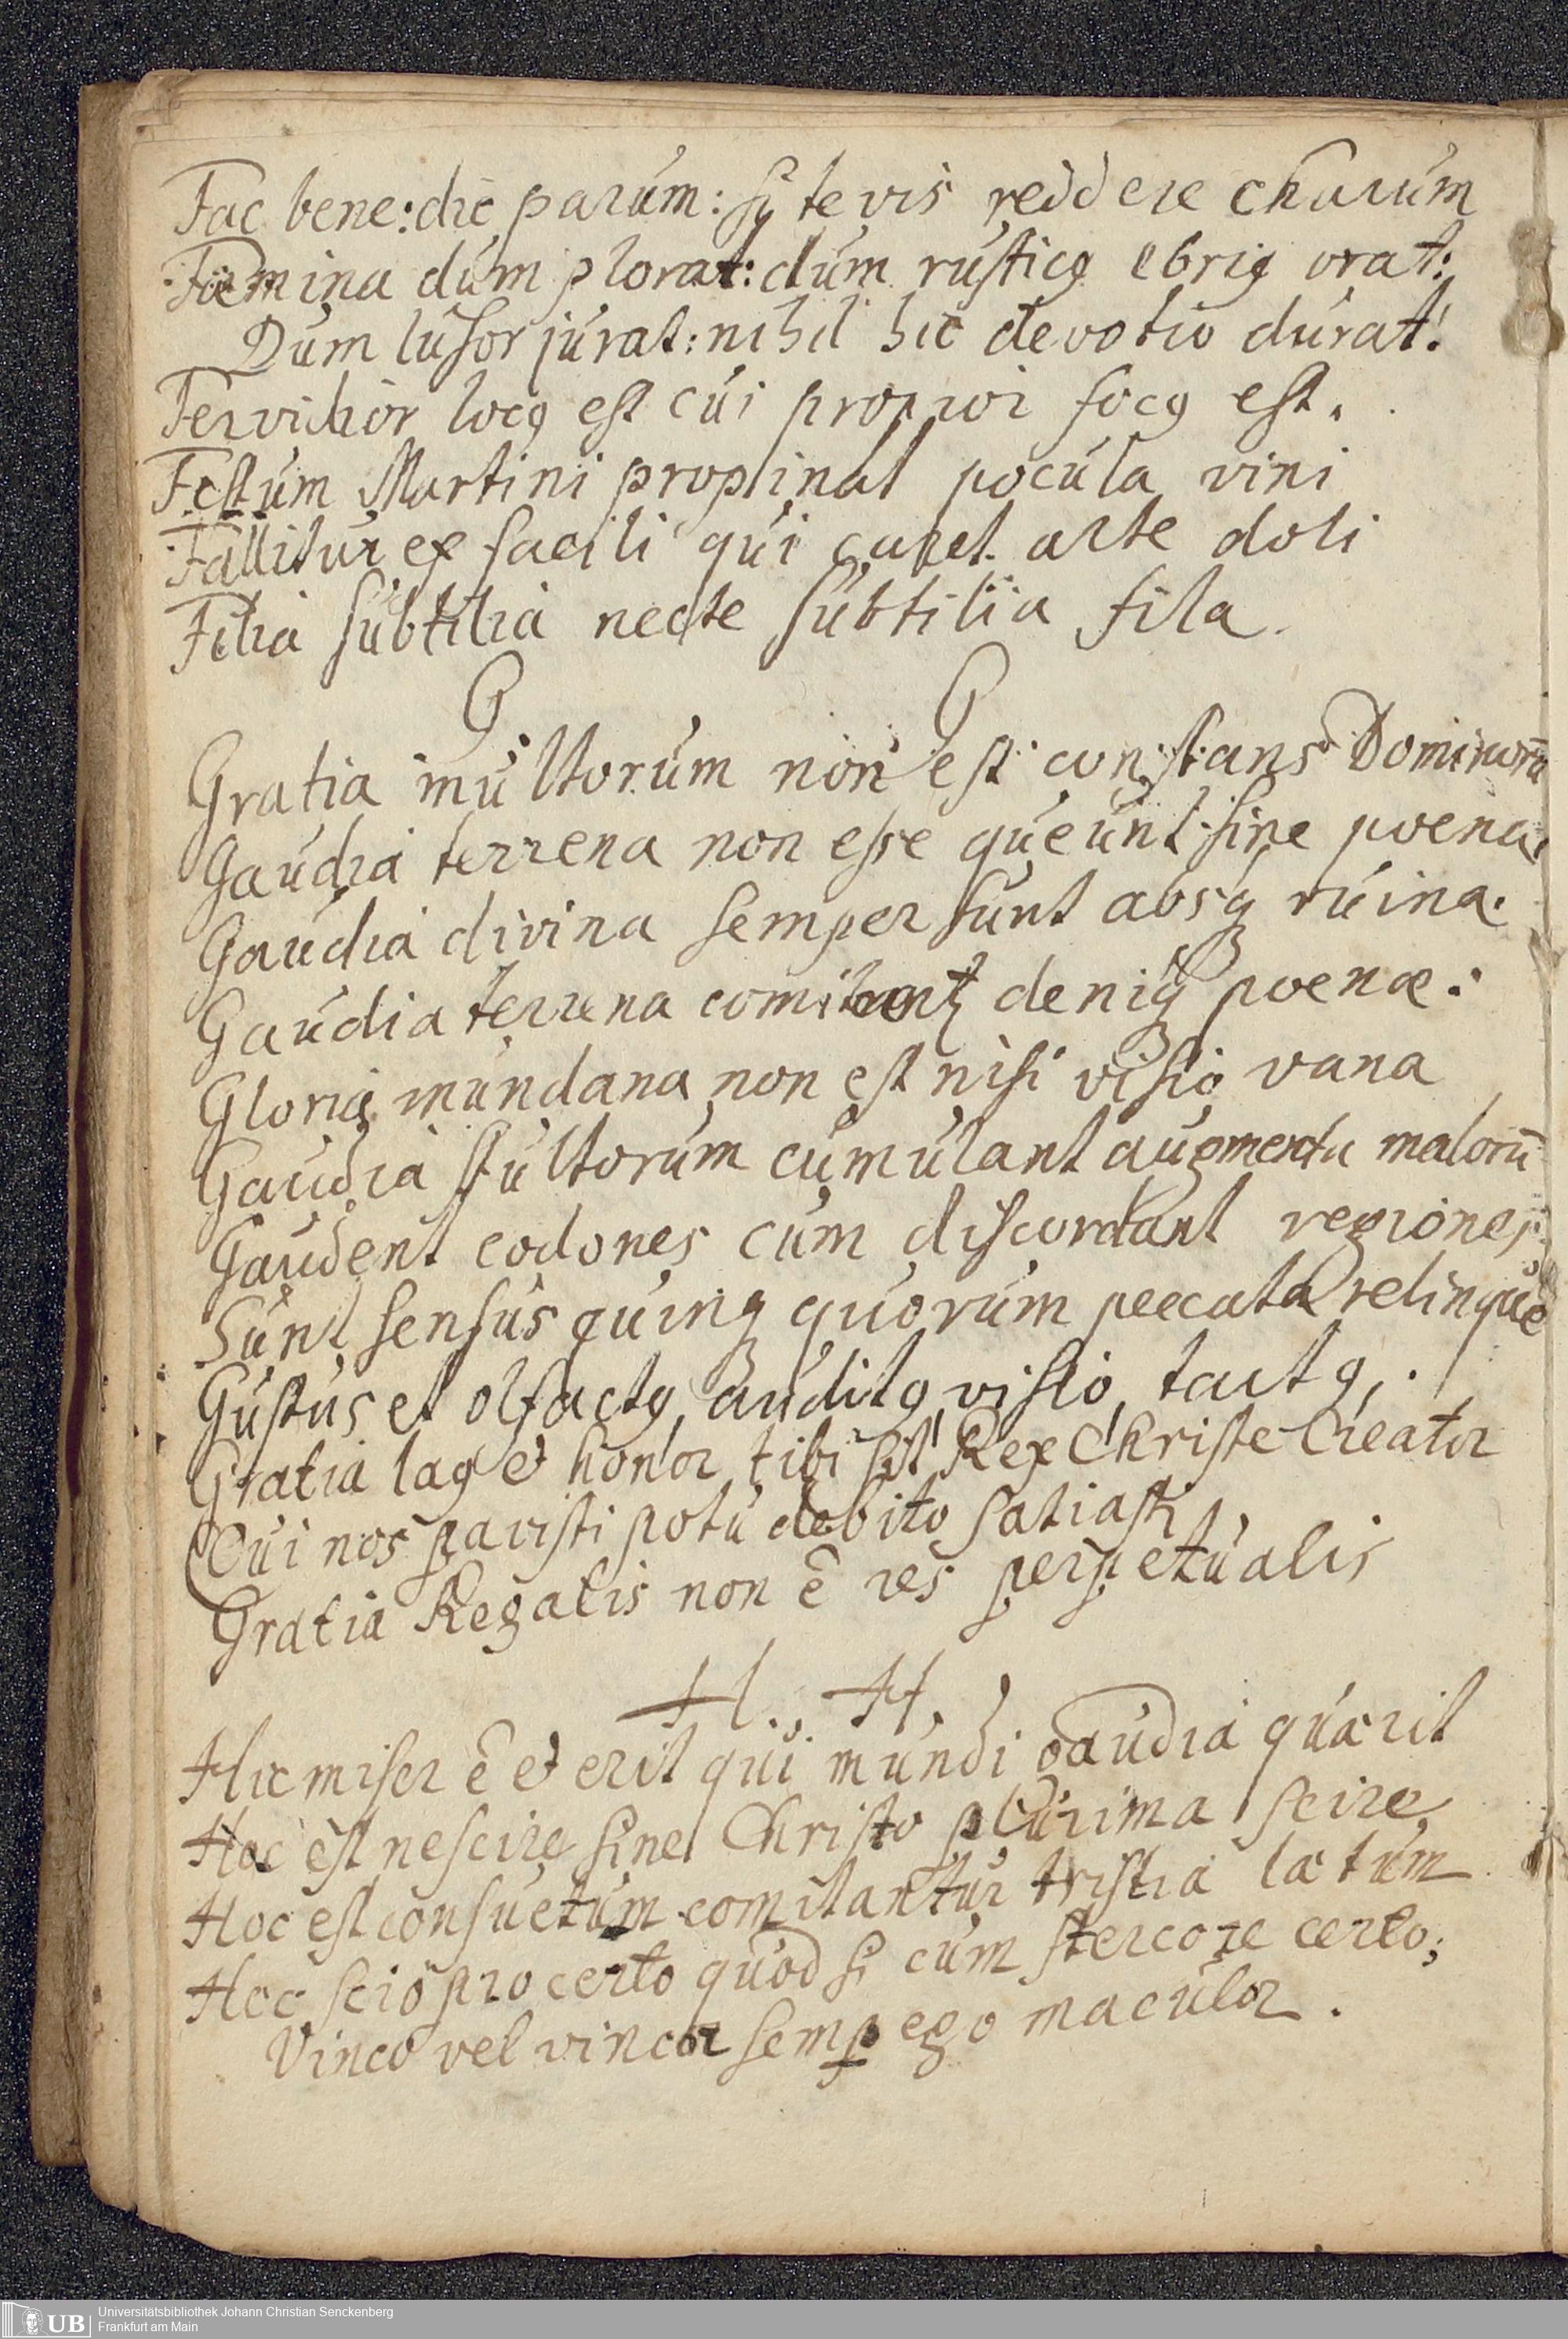 Fac bene: dic parum: sy te vis reddere charum
Foemina dum plorat: dum rusticꝯ ebriꝯ orat:
Dum lusor jurat: nihil hic devotio durat!
Fervidior locꝯ est cui proprior focꝯ est.
Festum Martini propinat pocula vini
Fallitur ex facili qui caret arte doli
Filia subtilia necte subtilia fila.
G G
Gratia multorum non est constans Dominorū
Gaudia terrena non esse queunt sine poena.
Gaudia divina semper sunt absq̨ ruina.
Gaudia terrena comitant deniq̨ poenæ:
Gloria mundana non est nisi visio vana
Gaudia stultorum cumulant augmenta malorū
Gaudent codones cum discordant regiones.
Sunt sensus quinq̨ quorum peccata relinque
Gustus et olfactꝯ, auditꝯ visio, tactꝯ.
Gratia laꝯ et honor tibi sit Rex Christe Creator
Qui nos pavisti potu debito satiasti
Gratia Regalis non ē res perpetualis
H., H.
Hic miser ē et erit qui mundi gaudia quærit
Hoc est nescire sine Christo plurima scire
Hoc est consuetum comitantur tristia lætum
Hoc scio pro certo quod si cum stercore certo;
Vinco vel vincor semꝑ ego maculor.
Universitätsbibliothek Johann Christian Senckenberg
Frankfurt am Main
UB